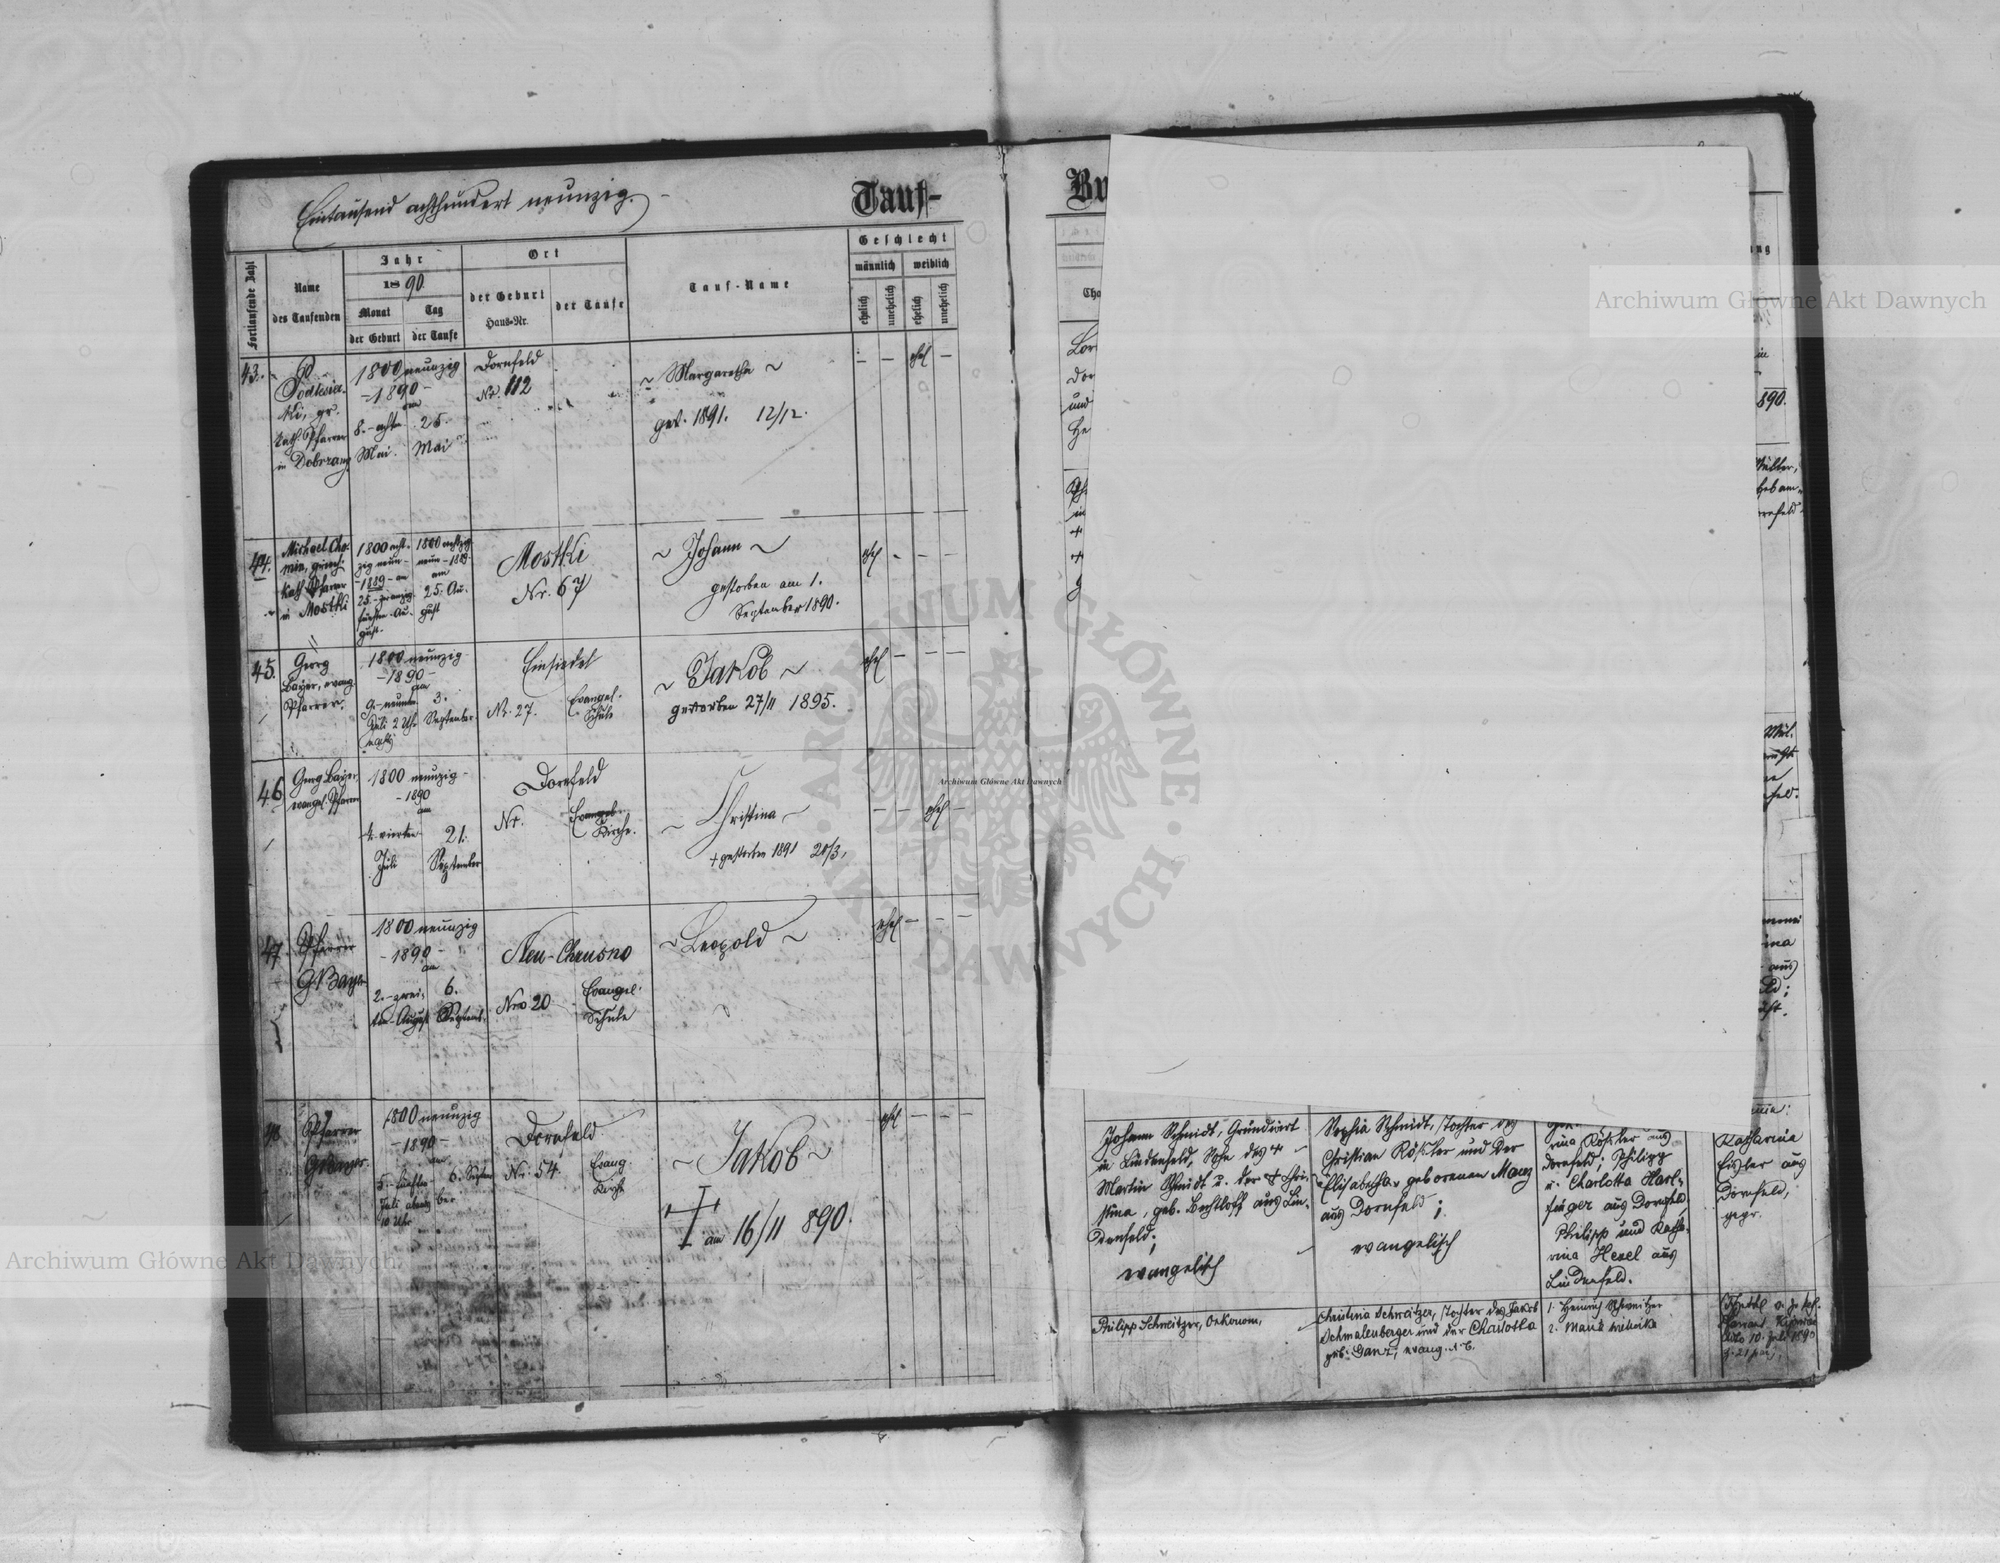 Eintausend achthundert neunzig.
Tauf-
Fortlaufende Zahl
Name
des Taufenden
Jahr
1890.
Monat
Tag
der Geburt
der Taufe
Ort
der Geburt
Haus-Nr.
der Taufe
Tauf-Name
Geschlecht
männlich
weiblich
ehelich
unehelich
ehelich
unehelich
43.
kath. Pfarrer
in Dobrzany
1800 neunzig
-1890-
am
8.- achten
Mai.
25.
Mai
Dornfeld
Nr. 112
~ Margaretha ~
gest. 1891. 12/12.
- - ehel -
44.
Michael Cho-
min, griech.
kath. Pfarrer
in Mostki
1800 acht-
zig neun-
-1889- am
25.- zwanzig
fünften Au-
gust.
1800 achtzig
neun -1889-
am
25. Au-
gust
Mostki
Nr. 67
~ Johann ~
gestorben am 1.
September 1890.
ehel - - -
45.
Georg
Bayer, evang.
Pfarrer.
1800 neunzig
-1890-
am
9.- neunten
Juli 2 Uhr
nachts
3.
September
Einsiedel
Nr. 27.
Evangel.
Schule
~ Jakob ~
gestorben 27/11 1895.
ehel - - -
46
Georg Bayer,
evangel. Pfarrer
1800 neunzig-
-1890
am
4. vierten
Juli
21.
September
Dornfeld
Nr.
Evangel.
Kirche.
~ Christina ~
+ gestorben 1891 20/3,
- - ehel -
47.
Pfarrer
G. Bayer
1800 neunzig
-1890-
am
2.- zwei-
ten August
6.
Septemb.
Neu-Chrusno
Nro 20
Evangel.
Schule
~ Leopold ~
ehel - - -
48
Pfarrer
G. Bayer.
1800 neunzig
-1890-
am
5.- fünften
Juli abends
10 Uhr
6. Septem
ber
Dornfeld
Nr. 54.
Evang.
Kirche
~ Jakob ~
am 16/11 890.
ehel - - -
Johann Schmidt, Grundwirt
in Lindenfeld, Sohn des +
Martin Schmidt u. der + Chri-
stina, geb. Bechtloff aus Lin-
denfeld;
evangelisch
Sophia Schmidt, Tochter des
Christian Rößler und der
Elisabetha, geborenen Manz
aus Dornfeld;
evangelisch
rina Rößler aus
Dornfeld; Philipp
u. Charlotta Harl-
finger aus Dornfeld,
Philipp und Katha-
rina Hexel aus
Lindenfeld.
Katharina
Eisler aus
Dornfeld,
gepr.
Philipp Schweitzer, Oekonom,
Christina Schweitzer, Tochter des Jakob
Schmalenberger und der Charlotta
geb. Ganz; evang. A.C.
1. Heinrich Schweitzer
2.
10. Juli 1890
Archiwum Główne Akt Dawnych
Archiwum Główne Akt Dawnych
Archiwum Główne Akt Dawnych
ARCHIWUM GŁÓWNE · AKT DAWNYCH ·